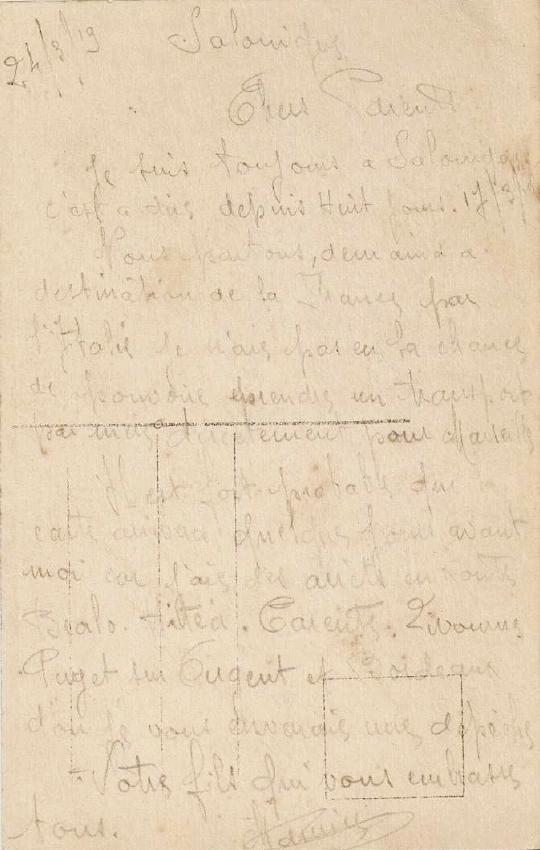 24/3/19 Salonique
Chers Parents
Je suis toujours a Salonique
c'est a dire depuis Huit jours. 17/3/
Nous partons, demain a
destination de la France par
l'Italie Je n'ais pas eu la chance
de pouvoir prendre un transport
par mer directement pour Marseille
Il est fort probable que la
carte arrivera quelque jours avant
moi car j'ais des arrets en route
Bralo. Itéa. Tarente. Livourne
Puget sur Argent et Bordeaux
d'ou je vous enverais une dépèche
Votre fils qui vous embrasse
tous.